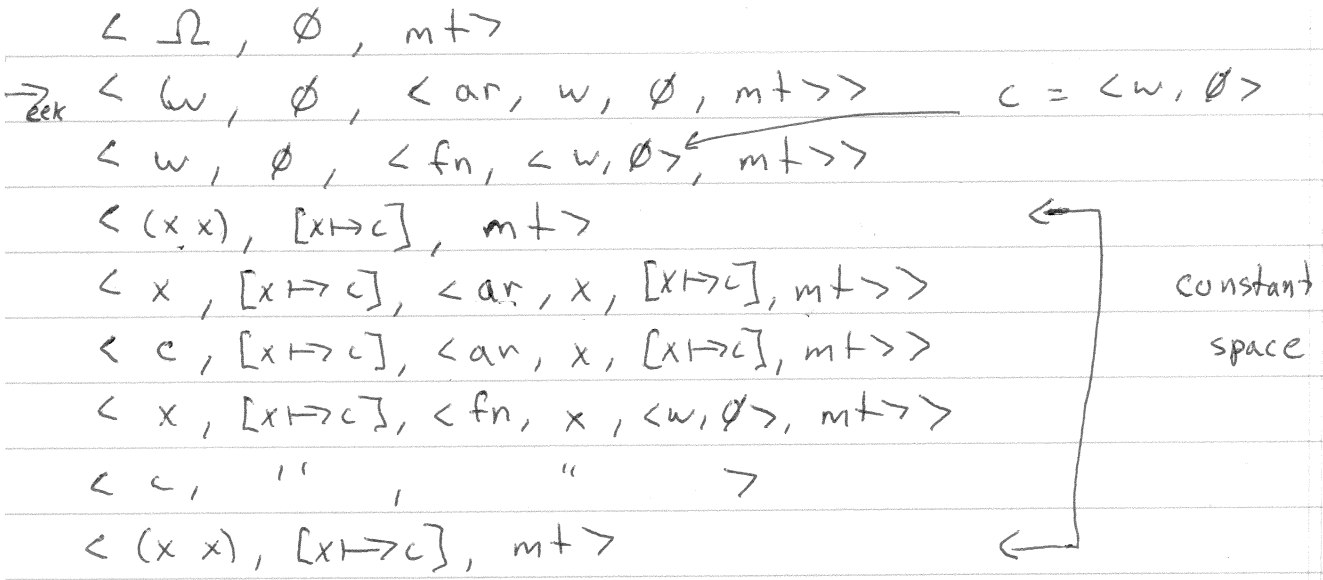 < Ω, ∅, mt>
→cek < w, ∅, < ar, w, ∅, mt>> c = <w, ∅>
< w, ∅, < fn, < w, ∅>, mt>>
< (x x), [x↦c], mt>
< x, [x↦c], < ar, x, [x↦c], mt>> constant
< c, [x↦c], <ar, x, [x↦c], mt>> space
< x, [x↦c], < fn, x, <w, ∅>, mt>>
< c, " , " >
< (x x), [x↦c], mt>